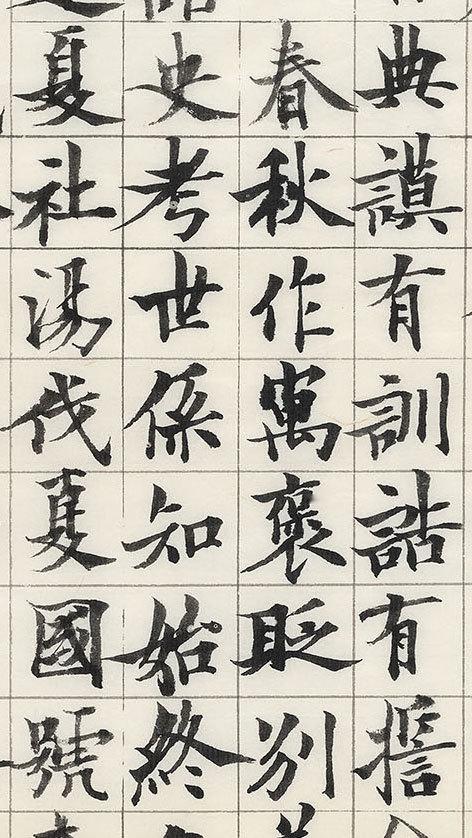 典謨有訓誥有誓
春秋作寓褒貶別
史考世係知始終
夏社湯伐夏國號